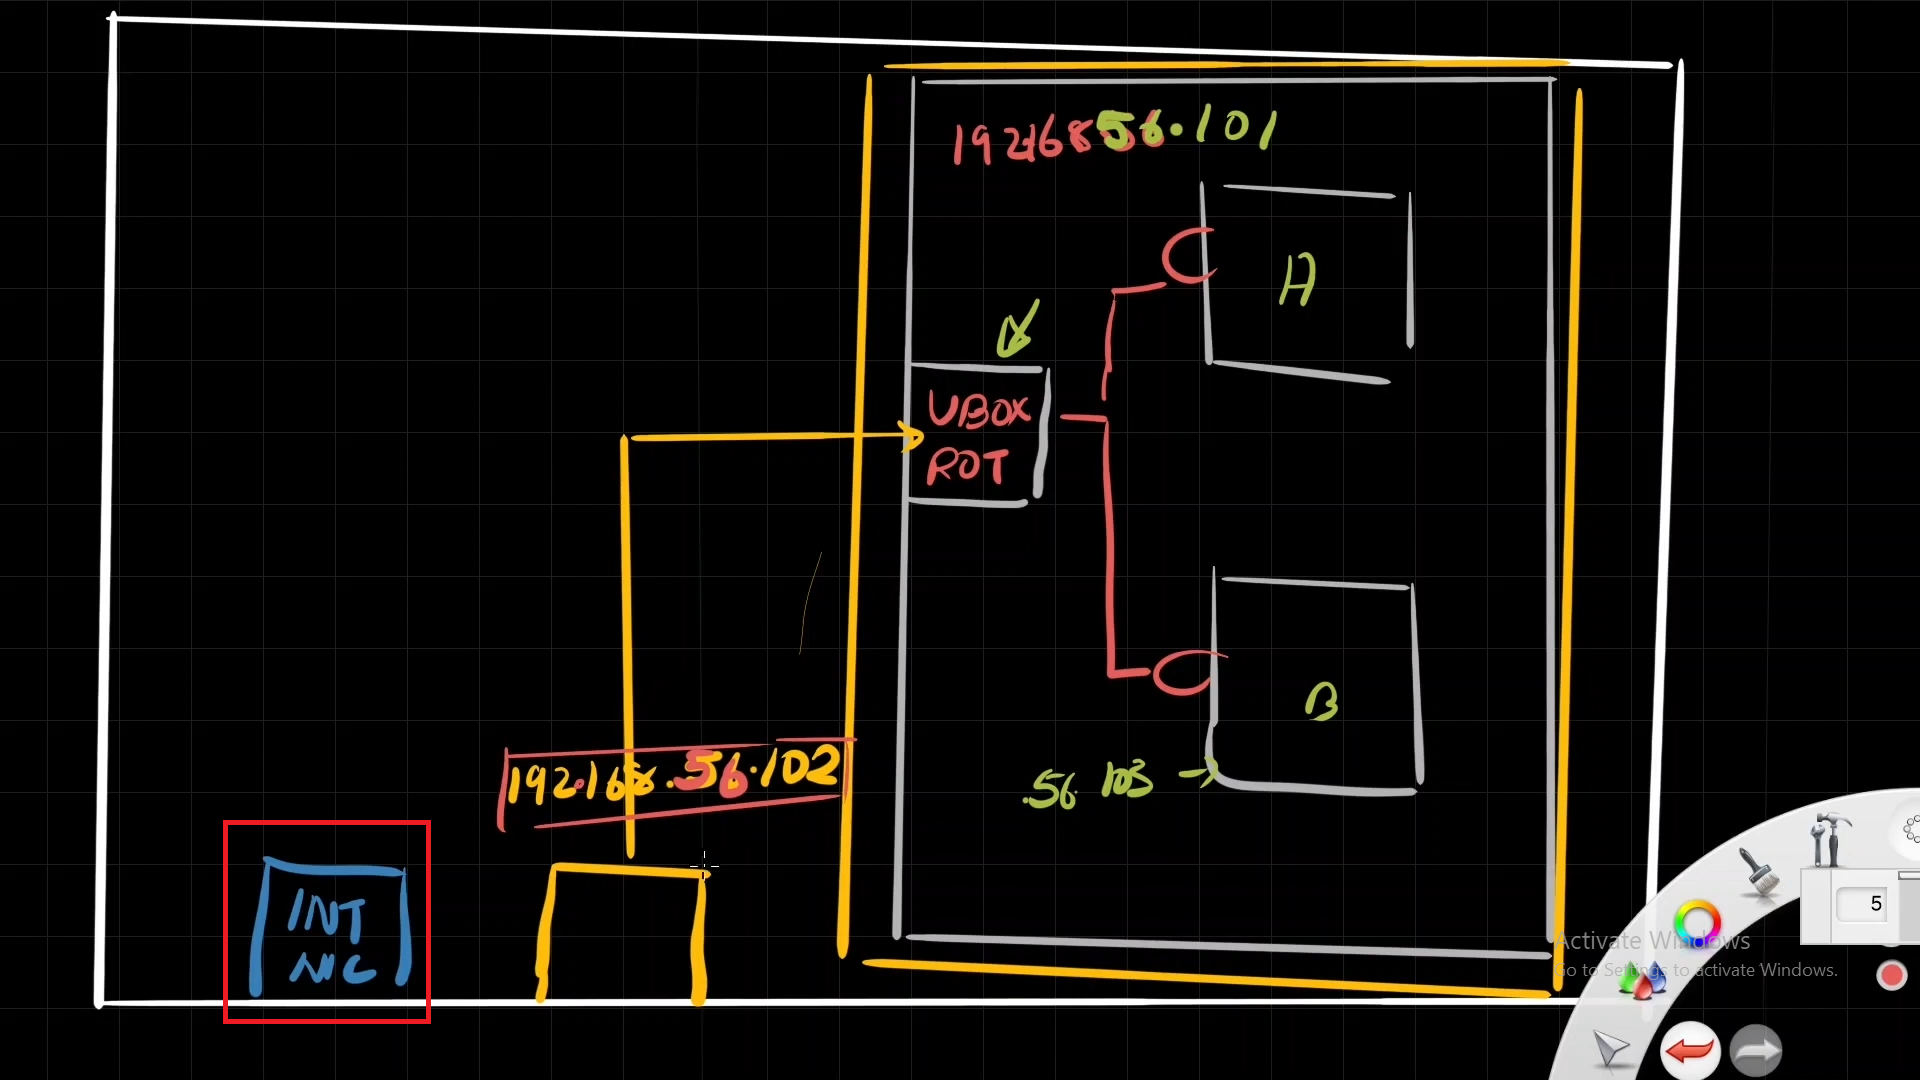 192.168 56.101
A
VBOX
ROT
192.168.56.102
B
.56.103
INT
NIC
5
Activate Windows
Go to Settings to activate Windows.